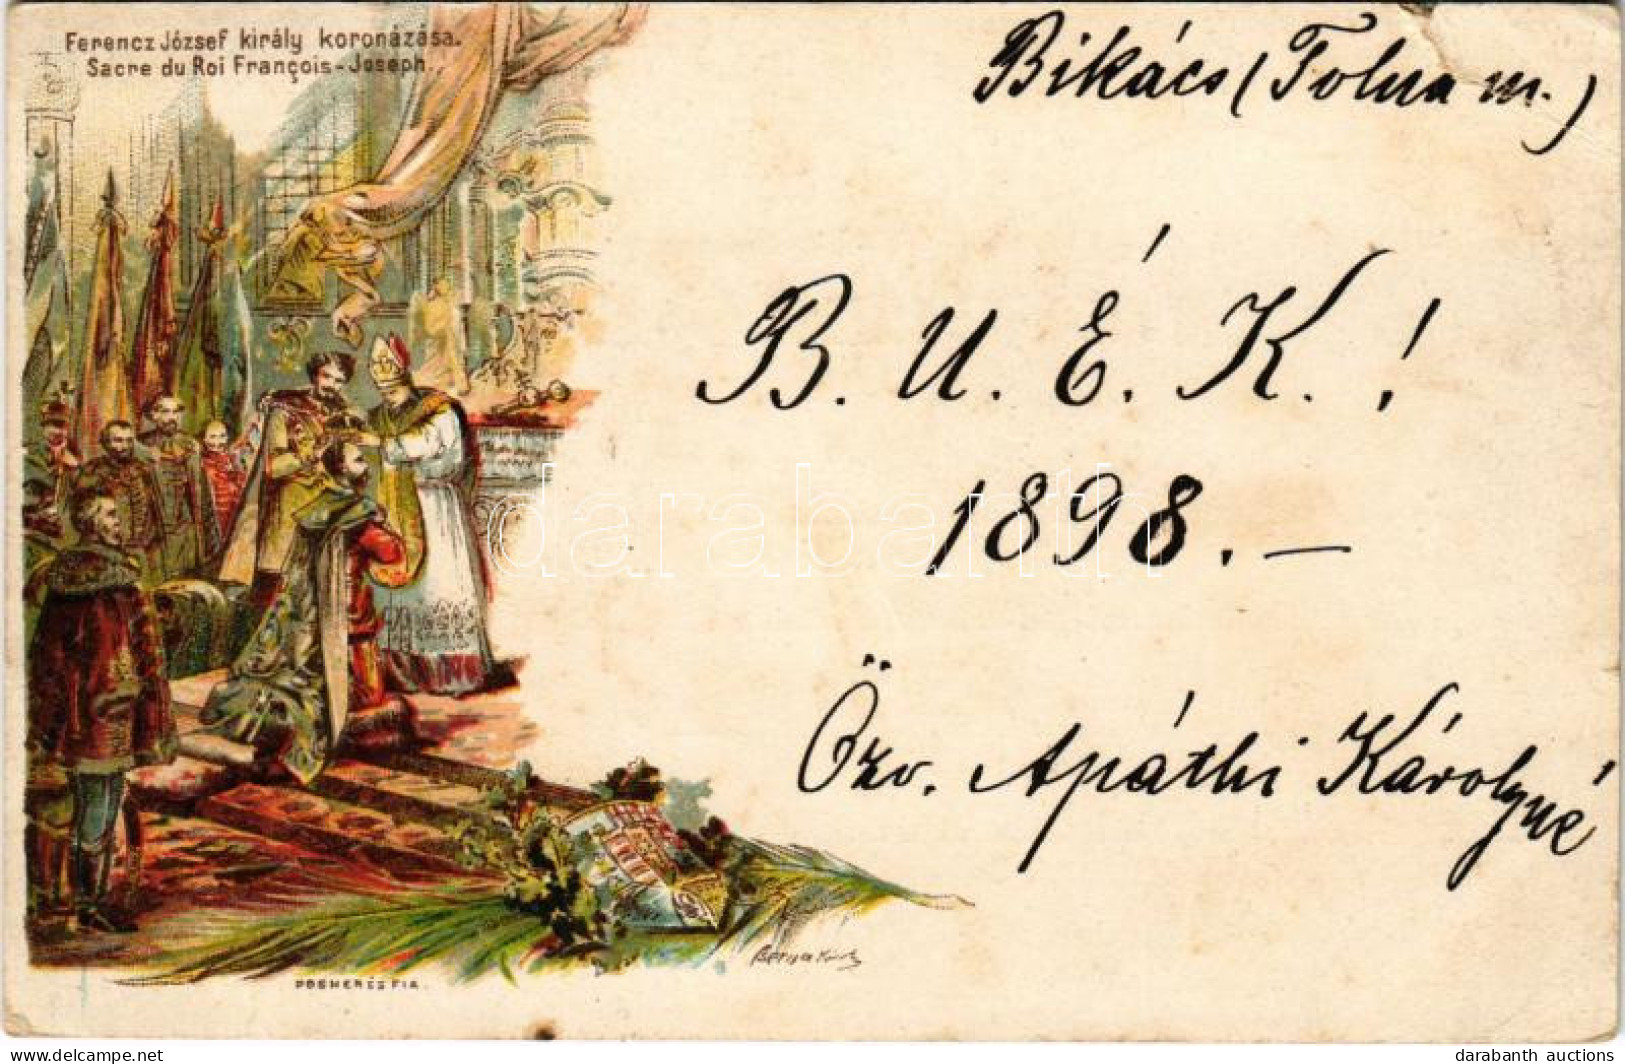 Ferencz József király koronázása.
Sacre du Roi François-Joseph.
Bikács (Tolna m.)
B. U. É. K. !
1898.—
Özv. Apáthi Károlyné
darabanth
POSNER ÉS FIA.
darabanth auctions
www.delcampe.net